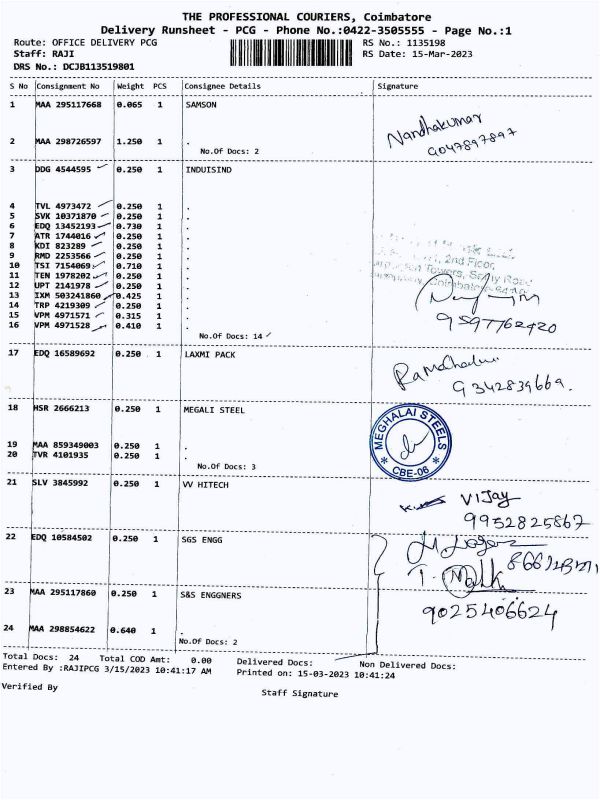 THE PROFESSIONAL COURIERS, Coimbatore
Delivery Runsheet - PCG - Phone No.:0422-3505555 - Page No.:1
Route: OFFICE DELIVERY PCG RS No.: 1135198
Staff: RAJI RS Date: 15-Mar-2023
DRS No.: DCJB113519801
S No Consignment No Weight PCS Consignee Details Signature
1 MAA 295117668 0.065 1 SAMSON
Nandhakumar
9047897897
2 MAA 298726597 1.250 1 .
No.Of Docs: 2
3 DDG 4544595 0.250 1 INDUISIND
4 TVL 4973472 0.250 1 .
5 SVK 10371870 0.250 1 .
6 EDQ 13452193 0.730 1 .
7 ATR 1744016 0.250 1 .
8 KDI 823289 0.250 1 .
9 RMD 2253566 0.250 1 .
10 TSI 7154069 0.710 1 .
11 TEN 1978202 0.250 1 .
12 UPT 2141978 0.250 1 .
13 IXM 503241860 0.425 1 .
14 TRP 4219309 0.250 1 .
15 VPM 4971571 0.315 1 .
16 VPM 4971528 0.410 1 .
No.Of Docs: 14
2nd Floor,
Towers,
Road
Coimbatore
9597762420
17 EDQ 16589692 0.250 1 LAXMI PACK
9342839669.
18 HSR 2666213 0.250 1 MEGALI STEEL
MEGHALAI STEELS
CBE-06
19 MAA 859349003 0.250 1 .
20 TVR 4101935 0.250 1 .
No.Of Docs: 3
21 SLV 3845992 0.250 1 VV HITECH
VIJay
9952825867
22 EDQ 10584502 0.250 1 SGS ENGG
23 MAA 295117860 0.250 1 S&S ENGGNERS
9025406624
24 MAA 298854622 0.640 1 .
No.Of Docs: 2
Total Docs: 24 Total COD Amt: 0.00 Delivered Docs: Non Delivered Docs:
Entered By :RAJIPCG 3/15/2023 10:41:17 AM Printed on: 15-03-2023 10:41:24
Verified By Staff Signature